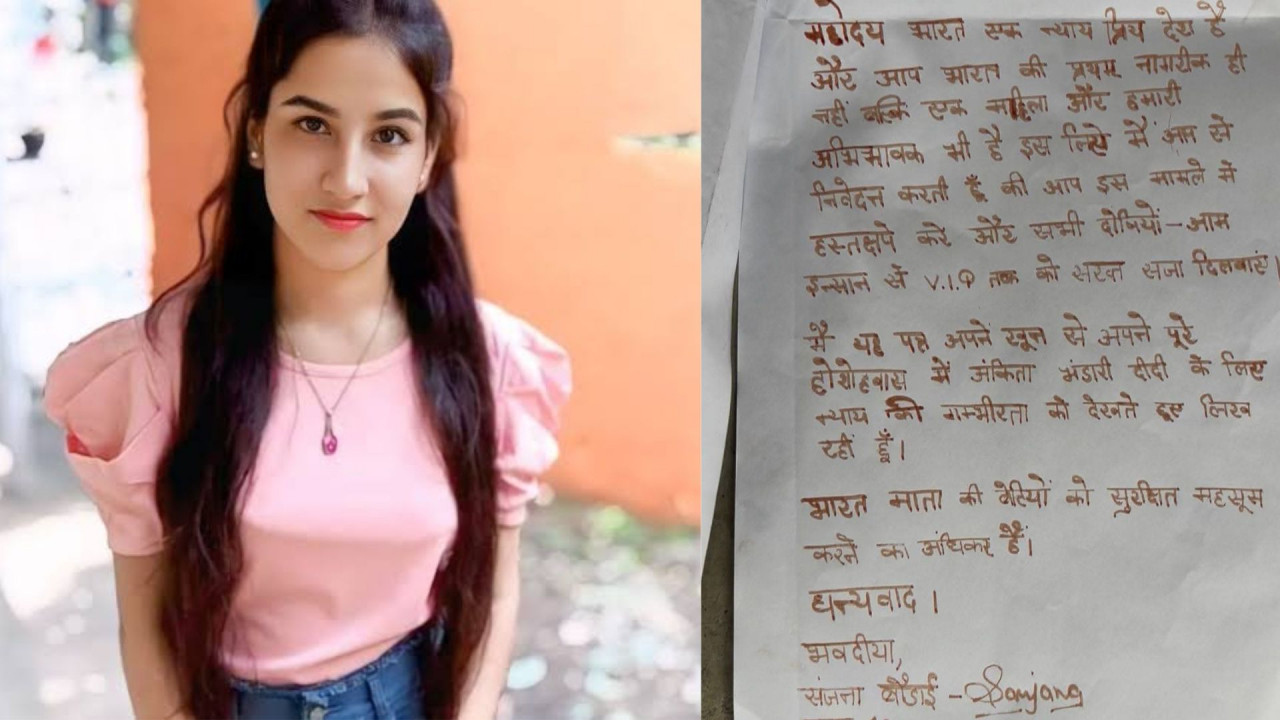 महोदय भारत एक न्याय प्रिय देश है
और आप भारत की प्रथम नागरीक ही
नहीं बल्कि एक महिला और हमारी
अभिभावक भी है इस लिए मैं आप से
निवेदन करती हूँ की आप इस मामले में
हस्तक्षपे करे और सभी दोषियों - आम
इन्सान से V.I.P तक को सख्त सजा दिलवाएं।
मैं यह पत्र अपने खून से अपने पूरे
होशोहवास में अंकिता भंडारी दीदी के लिए
न्याय की गम्भीरता को देखते हुए लिख
रही हूँ।
भारत माता की बेटियों को सुरक्षित महसूस
करने का अधिकर हैं।
धन्यवाद।
भवदीया,
संजना - Sanjana